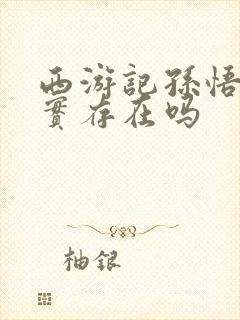 西游記孫悟
實存在吗
柚銀